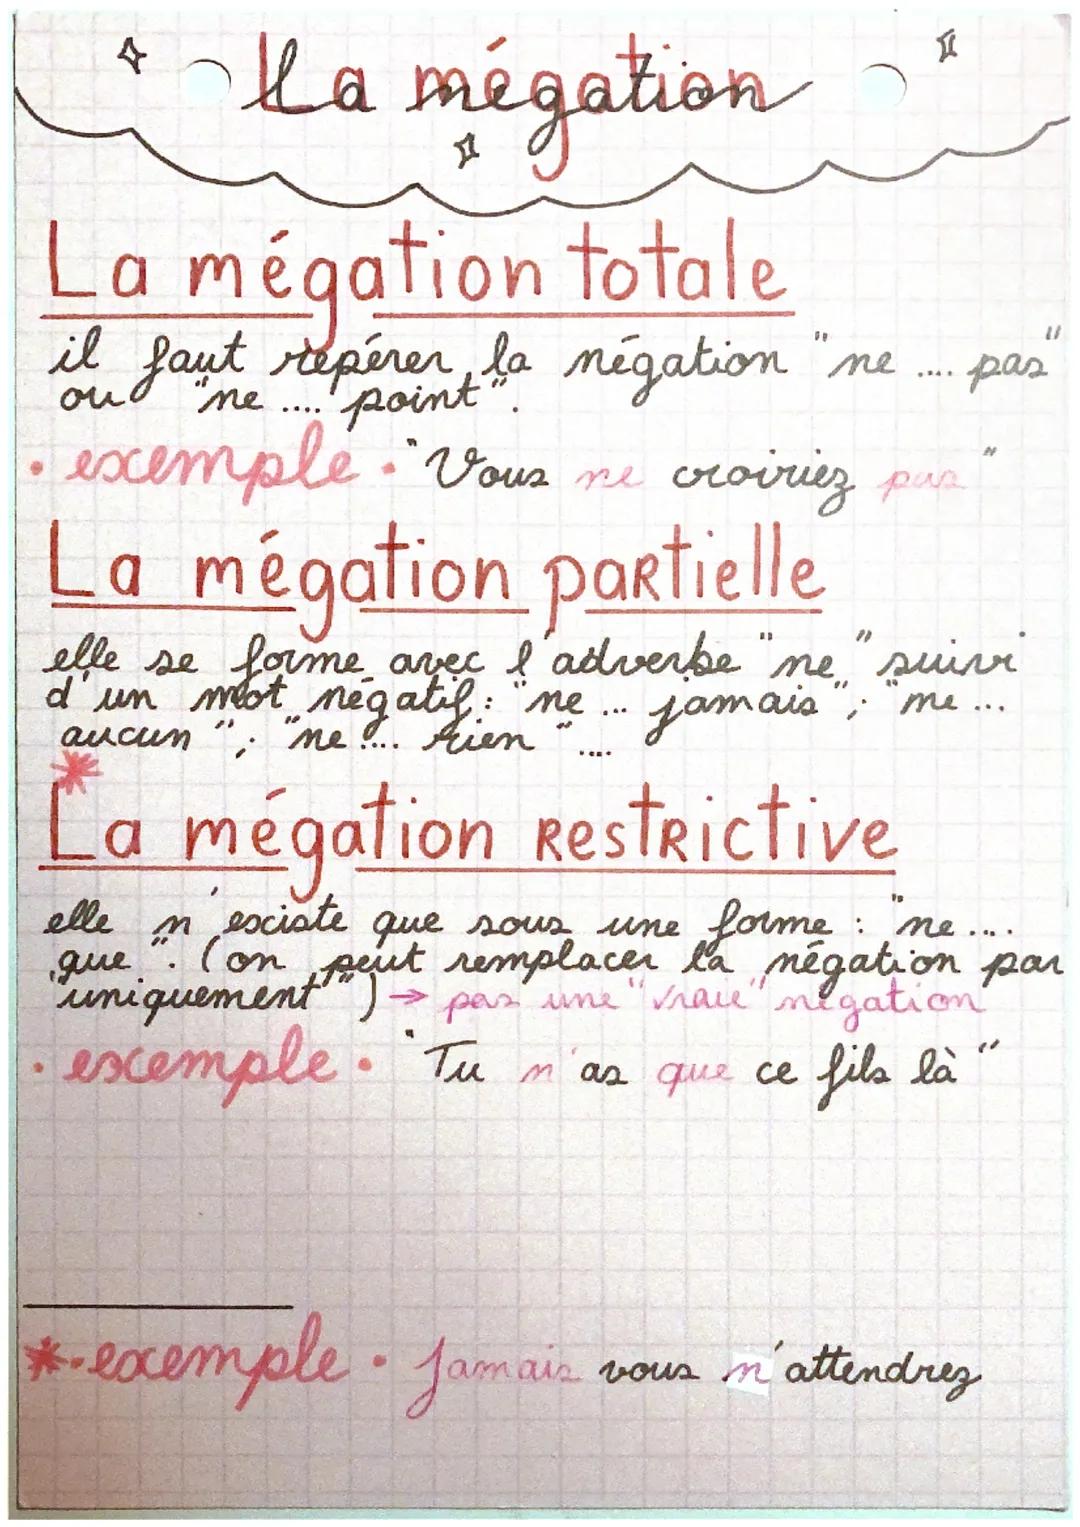 La négation
La négation totale
il faut repérer la négation "ne .... pas"
ou "ne .... point".
• exemple • "Vous ne croiriez pas"
La négation partielle
elle se forme avec l'adverbe "ne" suivi
d'un mot négatif : "ne ... jamais"; "ne ...
aucun"; "ne .... rien "....
*
La négation RESTRICTIVE
elle n'existe que sous une forme : "ne ....
que". (on peut remplacer la négation par
"uniquement") → pas une "vraie" négation
• exemple • "Tu n'as que ce fils là"
* • exemple • Jamais vous n'attendrez